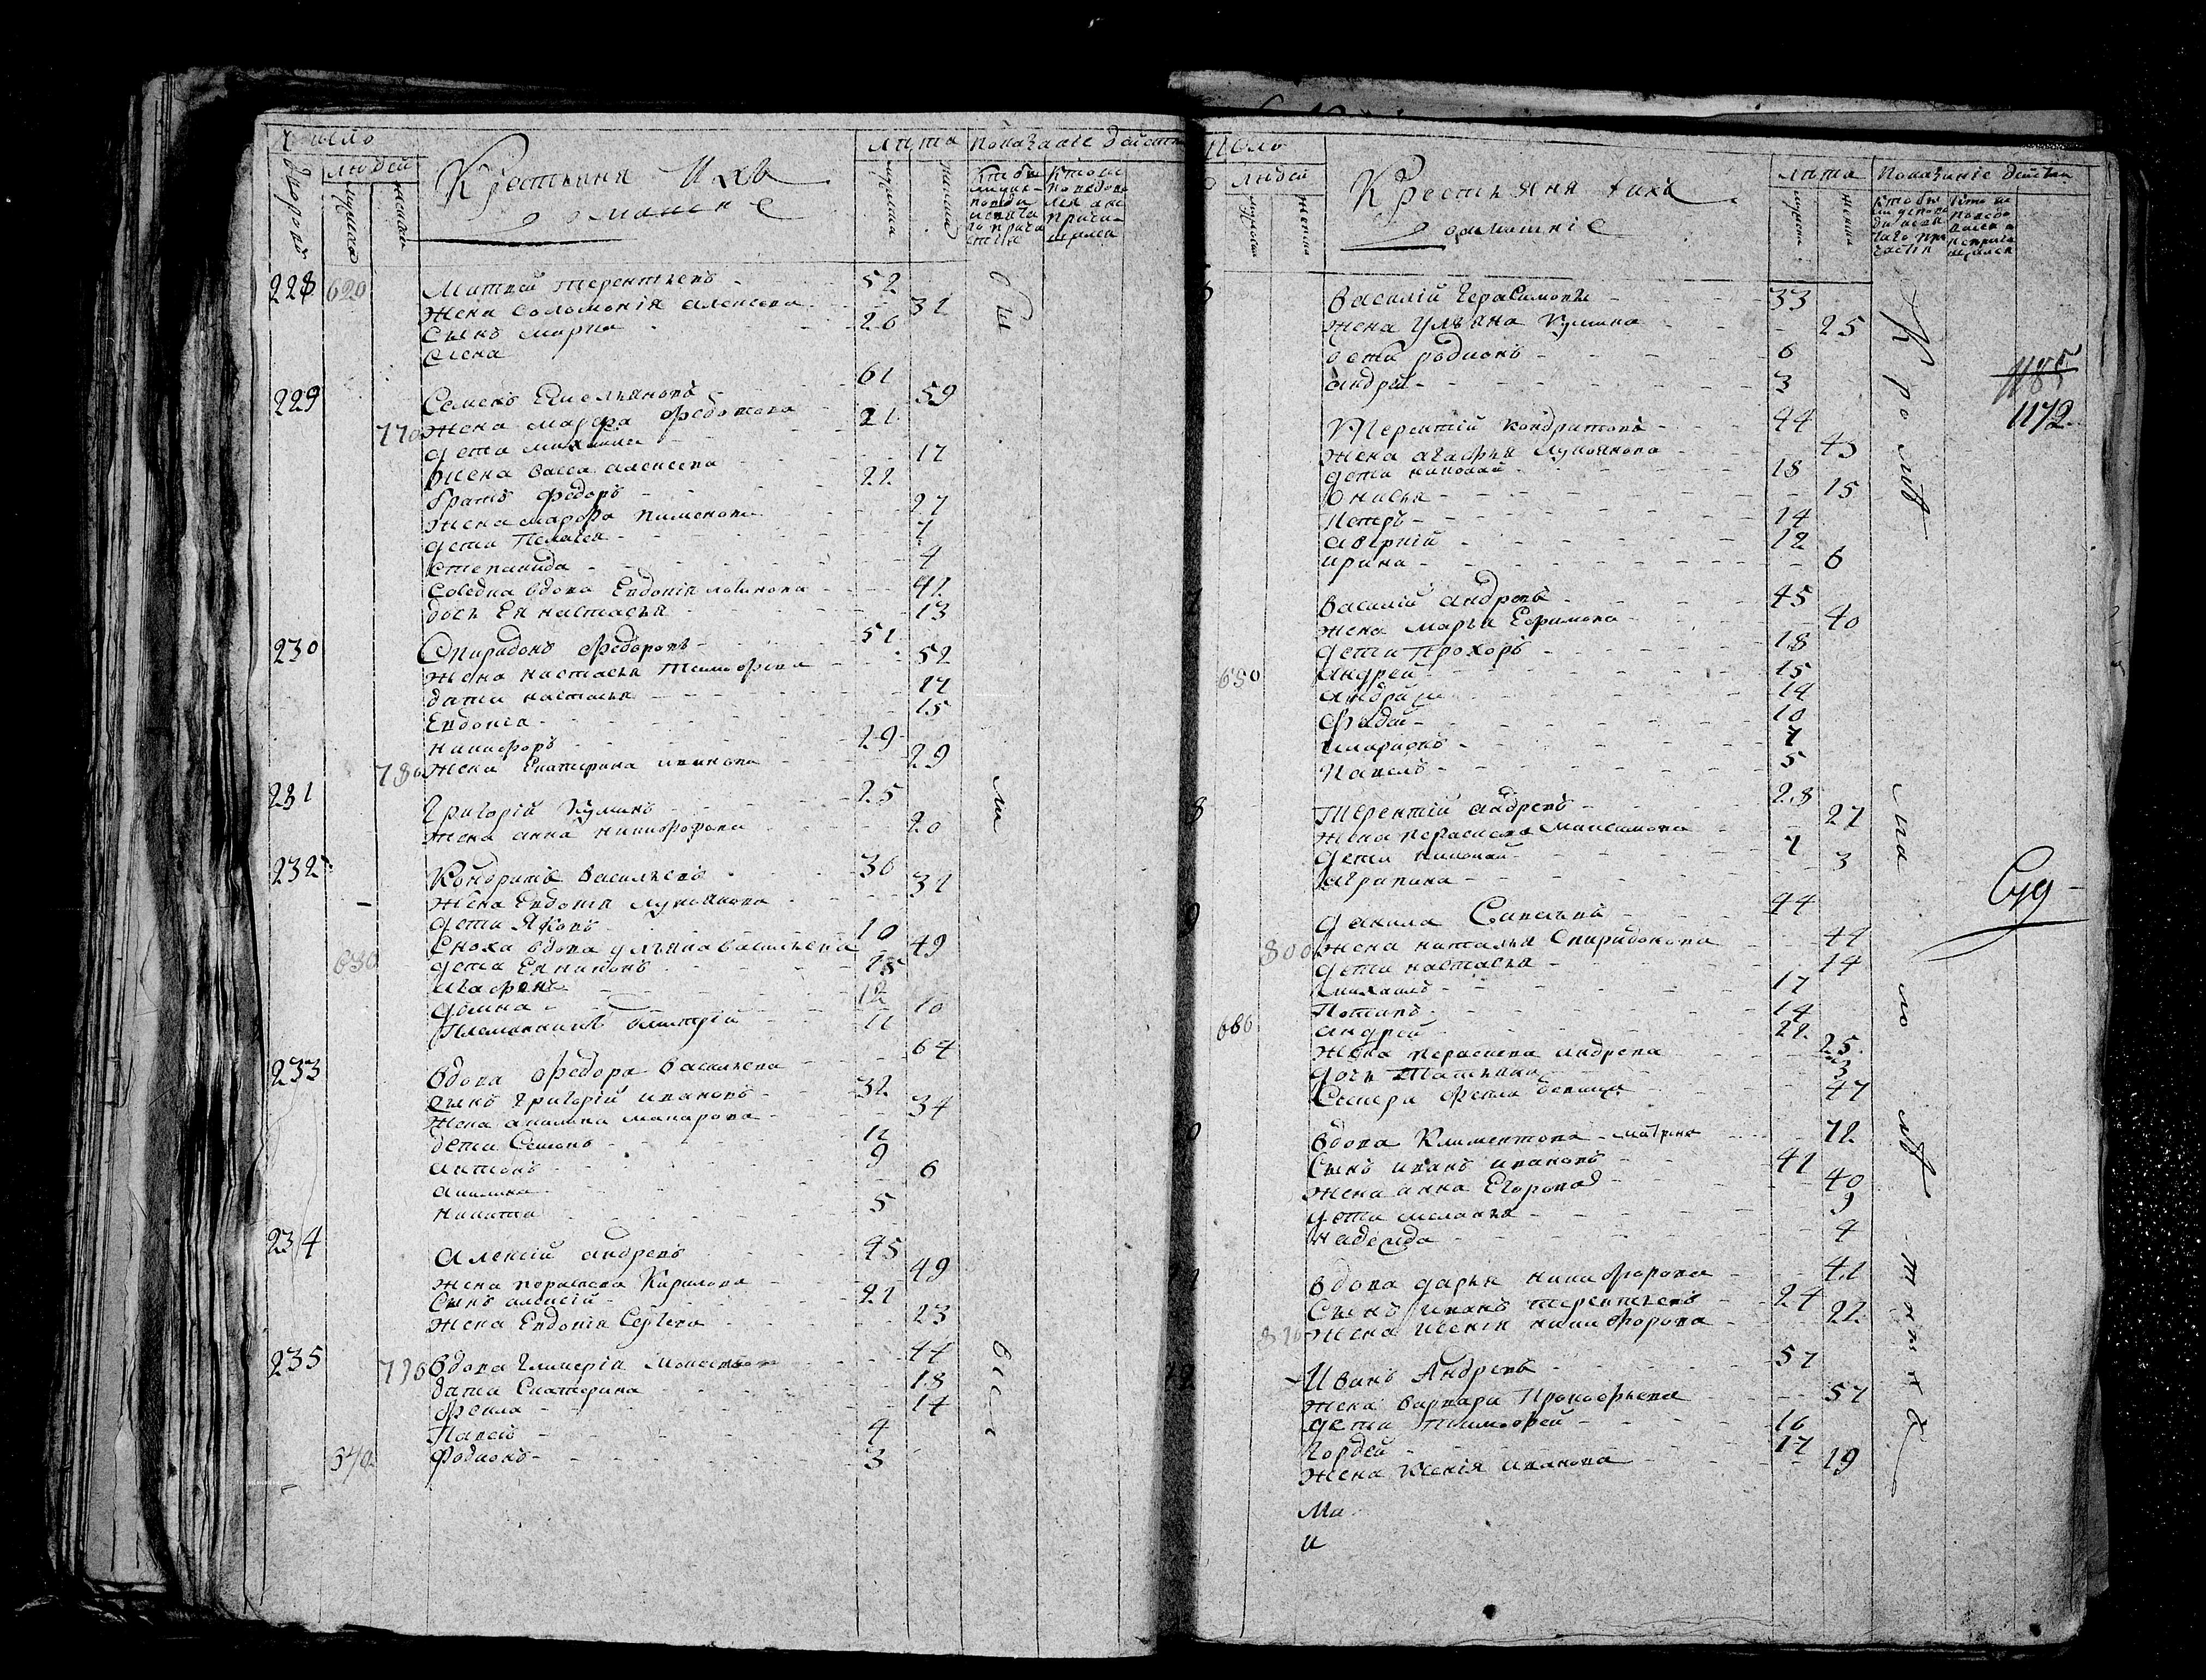 Число
Людей
Крестьяня Ихъ
домашнїе
Лѣта Показанїе действ
дворовъ
мужска
женска
мужска
женска
228 620 Матвей Терентьевъ 52
жена Соломонія Алексеева 31
Сынъ Маркъ 26
Елена
61
229 Семенъ Емельяновъ 59
770 жена Марфа Федотова 21
дети Михаила
жена Васса Алексеева 17
братъ Федоръ 22
жена Марфа Пименова 27
дети Пелагея 7
Степанида 4
вдова Евдокія 41
дочь Ея Настасья 13
230 Спиридонъ Федоровъ 51
жена Настасья Тимофеева 52
дети Настасья 17
Евдокія 15
Никифоръ 29
780 жена Екатерина Иванова 29
231 Григорій Кузминъ 25
жена Анна Никифорова 20
232 Кондратъ Васильевъ 36
жена Евдокія Лукьянова 31
дети Яковъ 10
Сноха вдова Ульяна Васильева 49
630 дети Ея Никонъ 15
Агафонъ 12
Домна 10
Племянникъ Дмитрій 11
64
233 Вдова Федора Васильева
Сынъ Григорій Ивановъ 32
жена Акилина Макарова 34
дети Семенъ 12
Антонъ 9
Акилина 6
Никита 5
234 Алексій Андреевъ 45
жена Парасковья Кирилова 49
Сынъ Алексій 21
жена Евдокія Сергеева 23
235 790 Вдова Гликерія 44
дети Екатерина 18
Фекла 14
4
340 Родионъ 3
Были
все
число
Людей
Крестьяня Ихъ
домашніе
Лѣта Показаніе действ
Василій Герасимовъ 33
жена Ульяна Кузмина 25
дети Родионъ 6
Андрей 3
Терентій Кондратовъ 44
жена Агафья Лукьянова 43
дети Николай 18
Онисья 15
Петръ 14
Аверкій 12
Ирина 6
Василій Андреевъ 45
жена Марья Ефимова 40
дети Прохоръ 18
650 Андрей 15
Андрей 14
Фадей 10
Иларионъ 7
Павелъ 5
Терентій Андреевъ 28
жена Парасковья Максимова 27
дети Николай 7
Аграпина 3
Данила Савельевъ 44
800 жена Наталья Спиридонова 44
дети Настасья 14
Михаилъ 17
Потапъ 14
660 Андрей 22
жена Парасковья Андреева 25
дочь Татьяна 3
Сестра Фекла девица 47
Вдова Климентова Матрена 72
Сынъ Иванъ Ивановъ 41
жена Анна Егорова 40
дети Меланья 9
Надежда 4
Вдова Дарья Никифорова 42
Сынъ Иванъ Терентьевъ 24
810 жена Ксенія Никифорова 22
Иванъ Андреевъ 57
жена Варвара Прокофьева 57
дети Тимофей 16
Гордей 17
жена Ксенія Иванова 19
Ма
И
Кроме
малолетныхъ
1185
1172